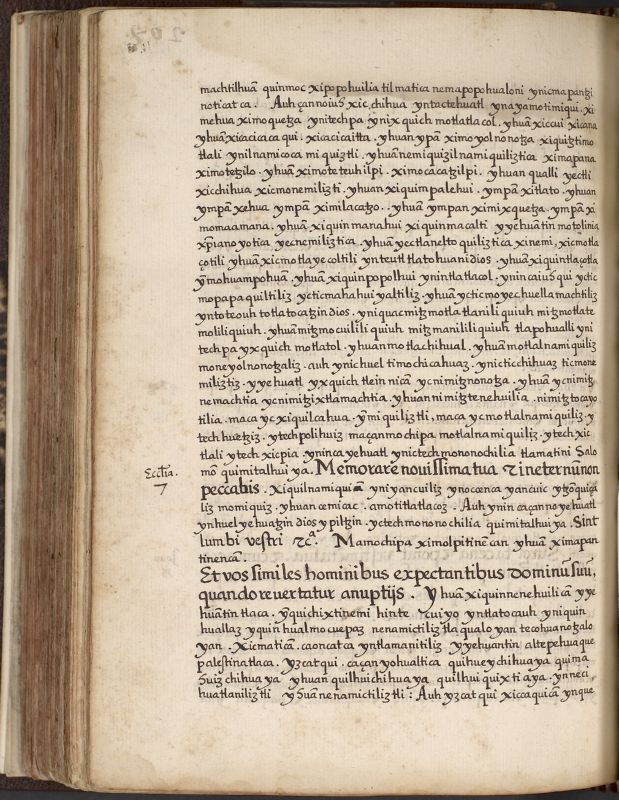 machtilhuā quinmoc xipopohuilia tilmatica nemapopohualoni ynicmapanȝi
noticatca. Auh çannoiuſ xicchihua yntactehuatl ynayamotimiqui. xi
mehua ximoquetȝa. ynitechpa ynixquich motlatlacol. yhuā xiccui xicana
yhuā xicacicacaqui. xicacicaitta. yhuan ypā ximoyolnonotȝa xiquiȝtimo
tlali ynilnamicoca miquiztli. yhuā nemiquiȝilnamiquiliztica ximapana
ximotetȝilo. yhuā ximoteteuhilpi. ximocacatȝilpi. yhuan qualli yectli
xicchihua xicmonemilizti. yhuan xiquimpalehui. ympā xitlato. yhuan
ympā xehua ympā ximilacatȝo. yhuā ympan ximixquetȝa. ympā xi
momaamana. yhuā xiquinmanahui xiquinmacalti yyehuātin motolinia
xp̄iano yotica yecnemiliztica. yhuā yectlaneltoquiliztica xinemi, xicmotla
çotili yhuā xicmotlayecoltili ynteutl tlatohuani dios. yhuā xiquintlaçotla
ȳmohuampohuā. yhuā xiquinpopolhui ynintlatlacol. ynincaiuſ qui yctic
mopapaquiltiliz ycticmahahuiyaltiliz. yhuā ycticmoyechuellamachtiliz
yntoteouh totlatocatȝin dios. yniquac mitȝmotlatlanili quiuh mitȝmotlate
moliliquiuh. yhuā mitȝmocuililiquiuh mitȝmanililiquiuh tlapohualli yni
techpa yxquich motlatol. yhuan motlachihual. yhuā motlalnamiquiliz
moneyolnonotȝaliz. auh ynichuel timochicahuaz. ynicticchihuaz ticmone
miliztiz. yyehuatl yxquich tlein nicā ycnimitȝnonotȝa. yhuā ycnimitȝ
nemachtia ycnimitȝixtlamachtia. yhuan nimitȝtenehuilia. nimitȝtocayo
tilia. maca yc xiquilcahua. ȳmiquiliztli, maca yc motlalnamiquiliz. y
techhuetȝiz. ytechpolihuiz maçan mochipa motlalnamiquiliz. ytech xic
tlali ytech xicpia. yninca yehuatl ynictechmononochilia tlamatini Salo
mō quimitalhuiya. Memorare nouissima tua τ in eternū non
peccabis. xiquilnamiqui yniyancuiliz ynoccenca yancuic yțȝonquiça
liz momiquiz. yhuan çemicac. amotitlatlacoz. Auh ynin caçannoyehuatl
ynhuelyehuatȝin dios ypiltȝin. yctechmononochilia quimitalhuiya. Sint
lumbi vestri τcª. Mamochipa ximolpitinencan yhuā ximapan
tinencā.
Et vos similes hominibus expectantibus dominū suū,
quando reuertatur a nuptijs. Yhuā xiquinnenehuilicā yye
huātin tlaca. ȳquichixtinemi hinteucuiyo yntlatocauh yniquin
huallaz yquin hualmocuepaz nenamictiliztlaqualoyan tecohuanotȝalo
yan. xicmaticā. caoncatca yntlamanitiliz yyehuantin altepehuaque
palestina tlaca. Yȝcatqui. caçan yohualtica quihueychihuaya quima
huizchihuaya yhuan quilhuichihuaya quilhuiquixtiaya. ynneci
huatlaniliztli yhuā nenamictiliztli: Auh yȝcatqui xiccaquicā ynque
Eccl̄ia.
7